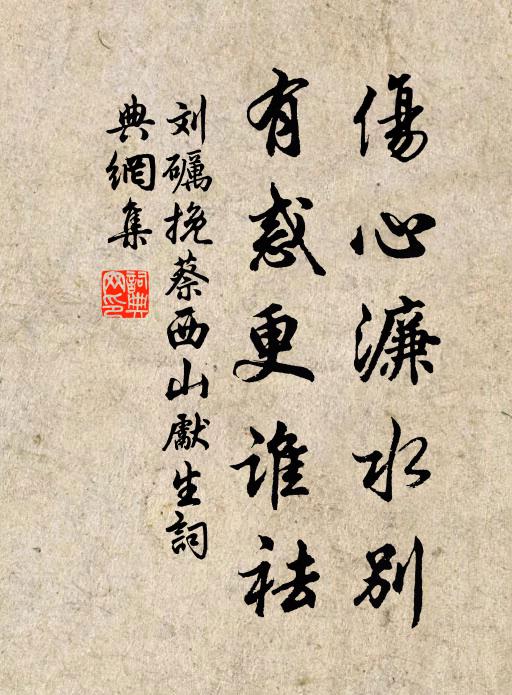 傷心濂水別
有惑更誰祛
刘礪挽蔡西山獻生詞
典網集
詞典
网印